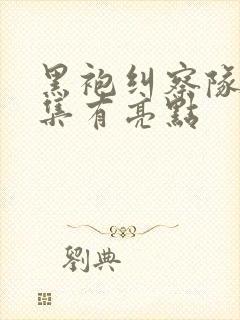 黑袍纠察隊
集有亮點
劉典